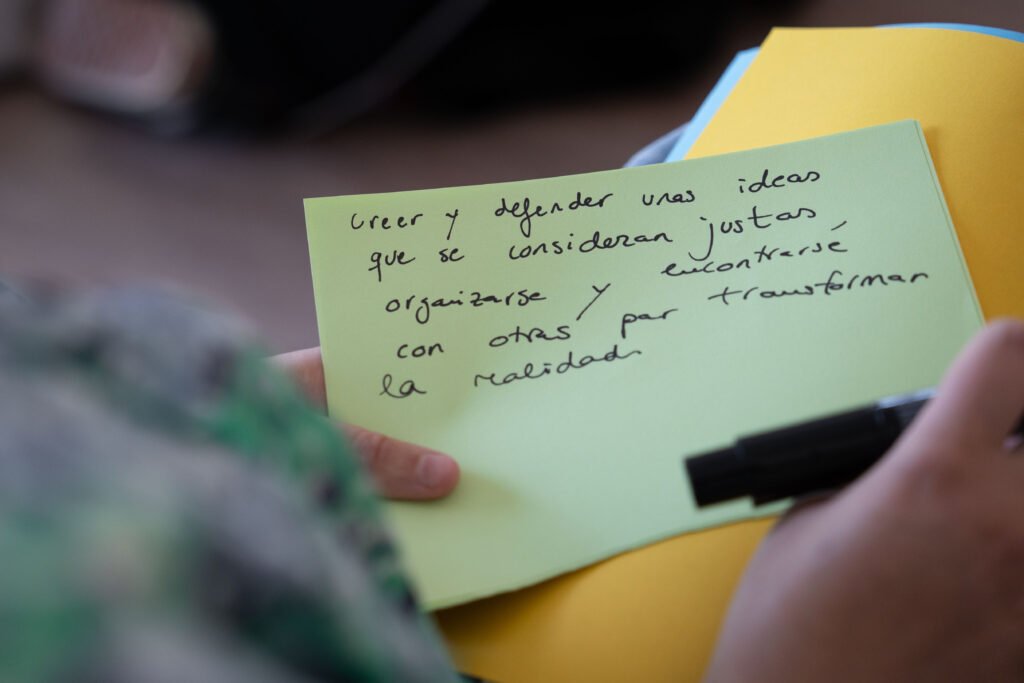 creer y defender unas ideas
que se consideran justas
organizarse y encontrarse
con otras par transformar
la realidad.